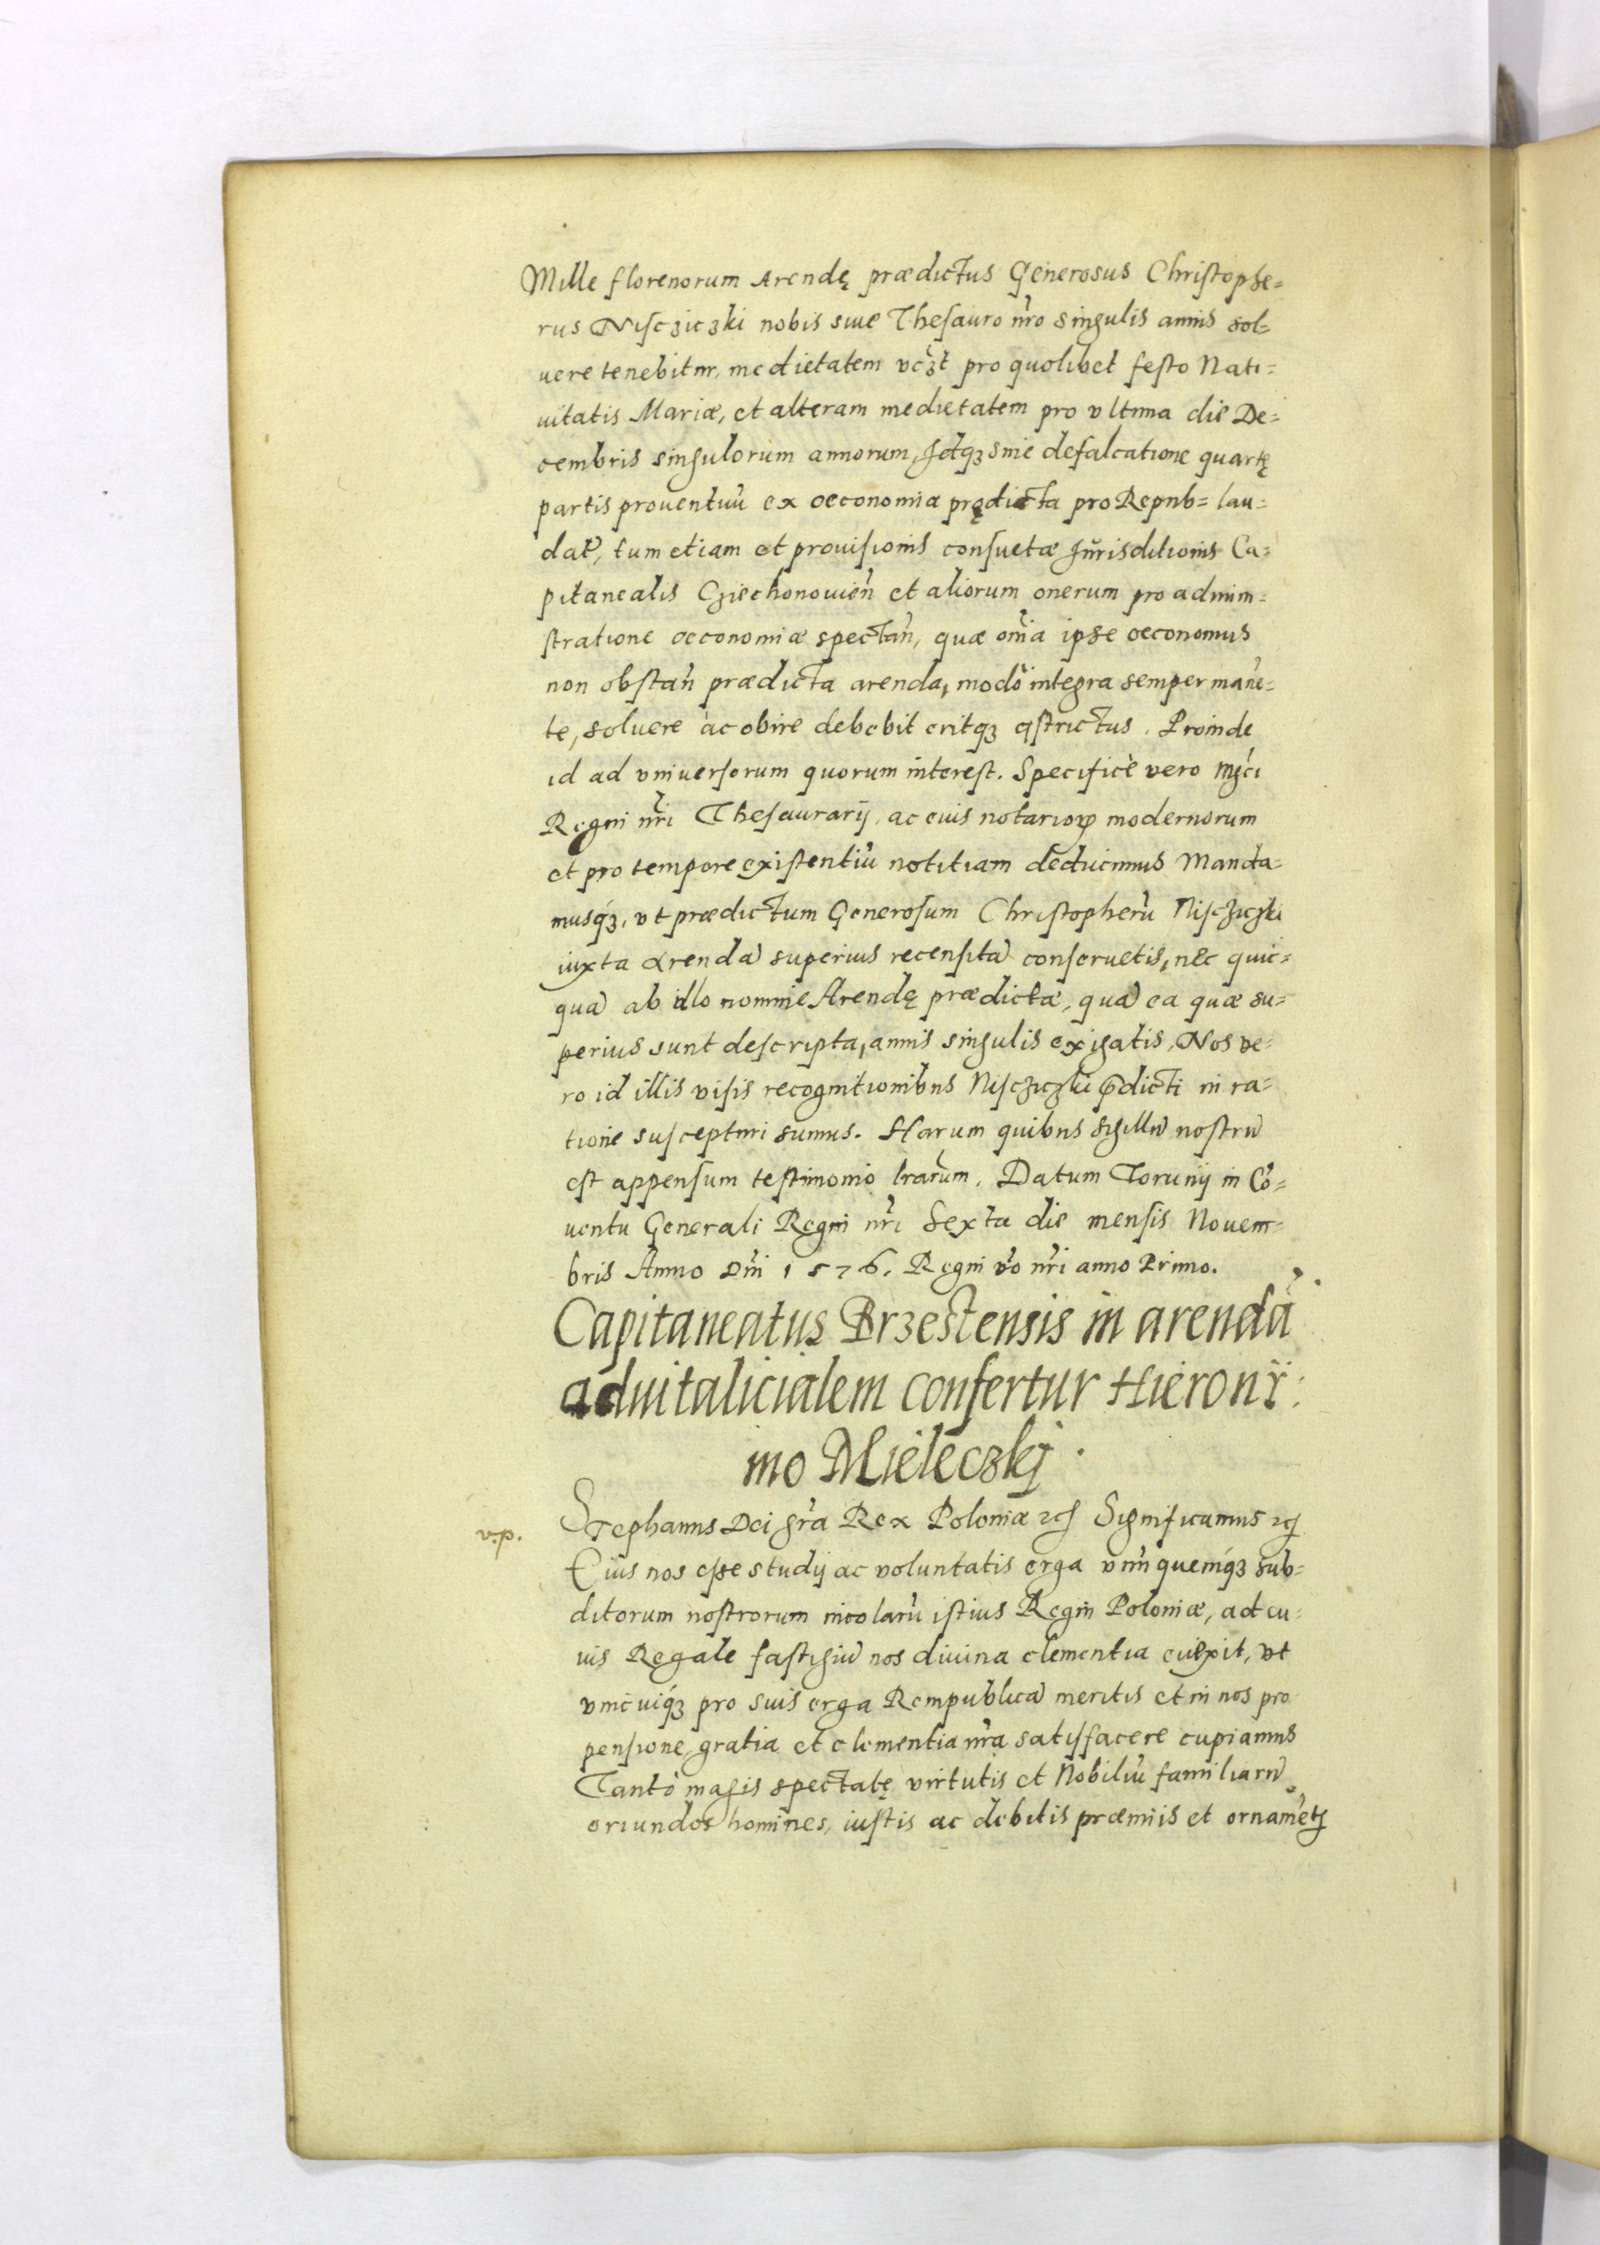 Mille florenorum Arendę prædictus Generosus Christophe=
rus Nisczickzki nobis siue Thesauro nr̃o singulis annis sol=
uere tenebitur, medietatem vcz̃t pro quolibet festo Nati=
uitatis Mariæ, et alteram medietatem pro vltima die De=
cembris singulorum annorum, Idqȝ sine defalcatione quartę
partis prouentuũ ex oeconomia prędicta pro Repub= lau=
datę, tum etiam et prouisionis consuetæ Jurisditionis Ca=
pitanealis Cziechonouien̄ et aliorum onerum pro admini=
stratione oeconomiæ spectan̄, quæ om̃ia ipse oeconomus
non obstan̄ prædicta arenda, modò integra semper mane=
te, soluere ac obire debebit eritqȝ astrictus. Proinde
id ad vniuersorum quorum interest. Specificè vero Mgc̃i
Regni nr̃i Thesaurarij, ac eius notariorꝝ modernorum
et pro tempore existentiũ notitiam deducimus Manda=
musqȝ, vt prædictum Generosum Christopherũ Nisczickzki
iuxta arendã superius recensitã conseruetis, nec quic=
quã ab illo nomine Arendę prædictæ, quã ea quæ su=
perius sunt descripta, annis singulis exigatis, Nos ve=
ro id illis visis recognitionibus Nisczickzki p̃dicti in ra=
tione suscepturi sumus. Harum quibus sigillũ nostrũ
est appensum testimonio lr̃arum. Datum Torunij in Cõ=
uentu Generali Regni nr̃i Sexta die mensis Nouem=
bris Anno Dñi 1576. Regni vo nr̃i anno Primo.
Capitaneatus Brzestensis in arendã
aduitalicialem confertur Hieronÿ=
mo Mieleczkj.
v.p.
Stephanus Dei gr̃a Rex Poloniæ ꝛcʃ Significamus ꝛcʃ
Eius nos esse studij ac voluntatis erga vnũquemqȝ sub=
ditorum nostrorum incolarũ istius Regni Poloniæ, ad cu=
ius Regale fastigiũ nos diuina clementia euexit, vt
vnicuiqȝ pro suis erga Rempublicã meritis et in nos pro
pensione, gratia et clementia nr̃a satisfacere cupiamus
Tantò magis spectatę virtutis et Nobiliũ familiarũ
oriundos homines, iustis ac debitis præmiis et ornamẽtʃ